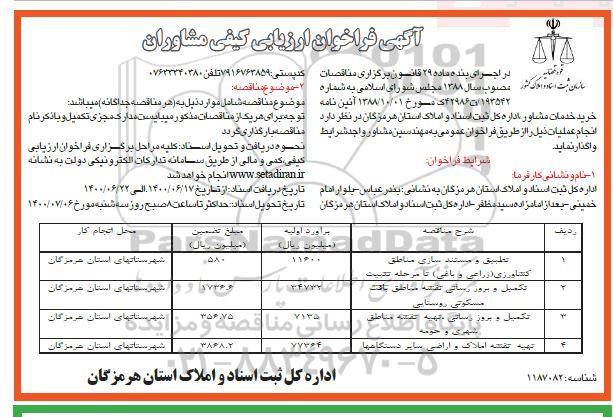 آگهی فراخوان ارزیابی کیفی مشاوران
قوه قضائیه
سازمان ثبت اسناد و املاک کشور
در اجرای بند ه ماده ۲۹ قانون برگزاری مناقصات
مصوب سال ۱۳۸۸ مجلس شورای اسلامی به شماره
۱۹۳۵۴۲/ت۴۲۹۸۶ک مورخ ۱۳۸۸/۱۰/۰۱ آئین نامه
خرید خدمات مشاور، اداره کل ثبت اسناد و املاک استان هرمزگان در نظر دارد
انجام عملیات ذیل را از طریق فراخوان عمومی به مهندسین مشاور واجد شرایط
واگذار نماید
شرایط فراخوان:
۱-نام و نشانی کارفرما:
اداره کل ثبت اسناد و املاک استان هرمزگان به نشانی: بندرعباس-بلوار امام
خمینی-بعد از امامزاده سید مظفر-اداره کل ثبت اسناد و املاک استان هرمزگان
کدپستی: ۷۹۱۶۷۶۳۸۵۹ تلفن ۰۷۶۳۳۳۴۰۳۸۰
۲-موضوع مناقصه:
موضوع مناقصه شامل موارد ذیل به (هر مناقصه جداگانه) میباشد:
توجه برای هر یک از مناقصات مذکور میبایست مدارک مجزی تکمیل و با ذکر نام
مناقصه بارگذاری گردد
نحوه دریافت و تحویل اسناد: کلیه مراحل برگزاری فراخوان ارزیابی
کیفی، کمی و مالی از طریق سامانه تدارکات الکترونیکی دولت به نشانه
www.setadiran.ir انجام خواهد شد
تاریخ دریافت اسناد: از تاریخ ۱۴۰۰/۰۶/۱۷ الی ۱۴۰۰/۰۶/۲۲
تاریخ تحویل اسناد: حداکثر تا ساعت ۸ صبح روز سه شنبه مورخ ۱۴۰۰/۰۷/۰۶
ردیف شرح مناقصه برآورد اولیه (میلیون ریال) مبلغ تضمین (میلیون ریال) محل انجام کار
۱ تطبیق و مستند سازی مناطق کشاورزی(زراعی و باغی) تا مرحله تثبیت ۱۱۶۰۰ ۵۸۰ شهرستانهای استان هرمزگان
۲ تکمیل و بروز رسانی نقشه مناطق بافت مسکونی روستایی ۳۴۷۳۲ ۱۷۳۶.۶ شهرستانهای استان هرمزگان
۳ تکمیل و بروز رسانی ،تهیه نقشه مناطق شهری و حومه ۷۱۳۵ ۳۵۶.۷۵ شهرستانهای استان هرمزگان
۴ تهیه نقشه املاک و اراضی سایر دستگاهها ۷۷۳۶۴ ۳۸۶۸.۲ شهرستانهای استان هرمزگان
اداره کل ثبت اسناد و املاک استان هرمزگان
شناسه: ۱۱۸۷۰۸۲
ParsNamadData
پایگاه اطلاع رسانی مناقصه و مزایده
۰۲۱-۸۸۳۴۹۶۷۰-۵